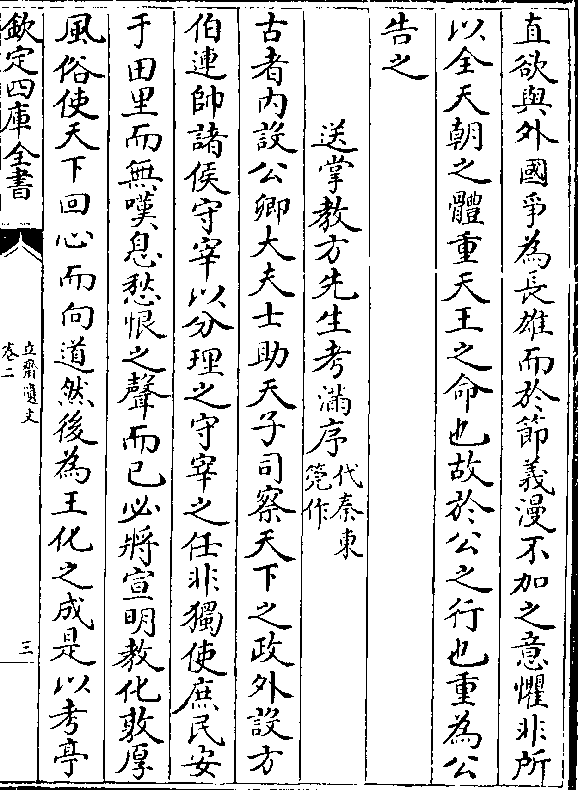 直欲與外國爭為長雄而於節義漫不加之意懼非所
以全天朝之體重天王之命也故於公之行也重為公
告之
送掌教方先生考滿序代秦東
筦作
古者内設公卿大夫士助天子司察天下之政外設方
伯連帥諸侯守宰以分理之守宰之任非獨使庶民安
于田里而無嘆息愁恨之聲而已必將宣明教化敦厚
風俗使天下回心而向道然後為王化之成是以考亭
欽定四庫全書
立齋遺文
卷二
三